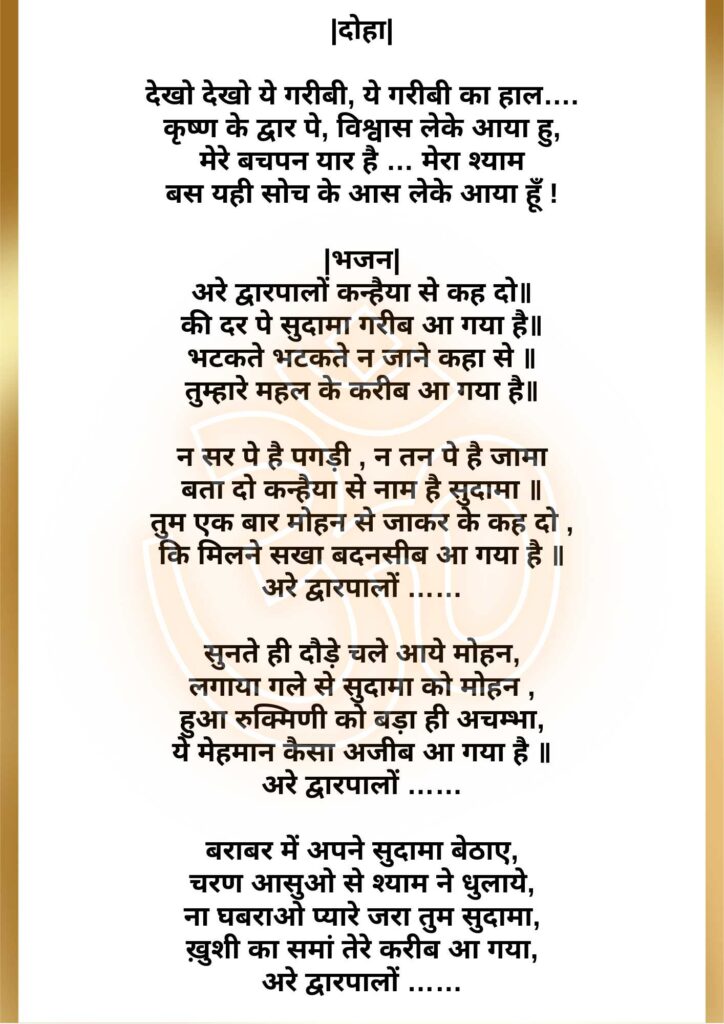 |दोहा|
देखो देखो ये गरीबी, ये गरीबी का हाल....
कृष्ण के द्वार पे, विश्वास लेके आया हु,
मेरे बचपन यार है ... मेरा श्याम
बस यही सोच के आस लेके आया हूँ !
|भजन|
अरे द्वारपालों कन्हैया से कह दो॥
की दर पे सुदामा गरीब आ गया है॥
भटकते भटकते न जाने कहा से ॥
तुम्हारे महल के करीब आ गया है॥
न सर पे है पगड़ी , न तन पे है जामा
बता दो कन्हैया से नाम है सुदामा ॥
तुम एक बार मोहन से जाकर के कह दो ,
कि मिलने सखा बदनसीब आ गया है ॥
अरे द्वारपालों ......
सुनते ही दौड़े चले आये मोहन,
लगाया गले से सुदामा को मोहन ,
हुआ रुक्मिणी को बड़ा ही अचम्भा,
ये मेहमान कैसा अजीब आ गया है ॥
अरे द्वारपालों ......
बराबर में अपने सुदामा बेठाए,
चरण आसुओ से श्याम ने धुलाये,
ना घबराओ प्यारे जरा तुम सुदामा,
ख़ुशी का समां तेरे करीब आ गया,
अरे द्वारपालों ......